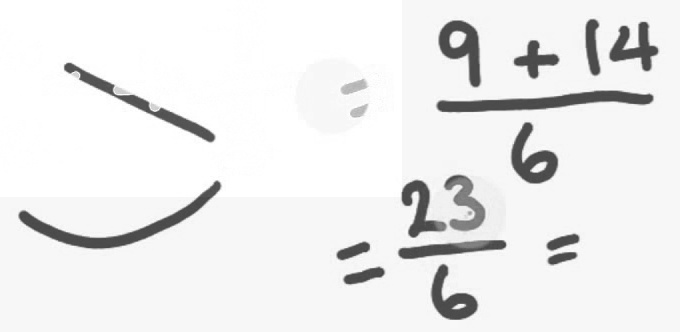 = 9 + 14
6
= 23 =
6